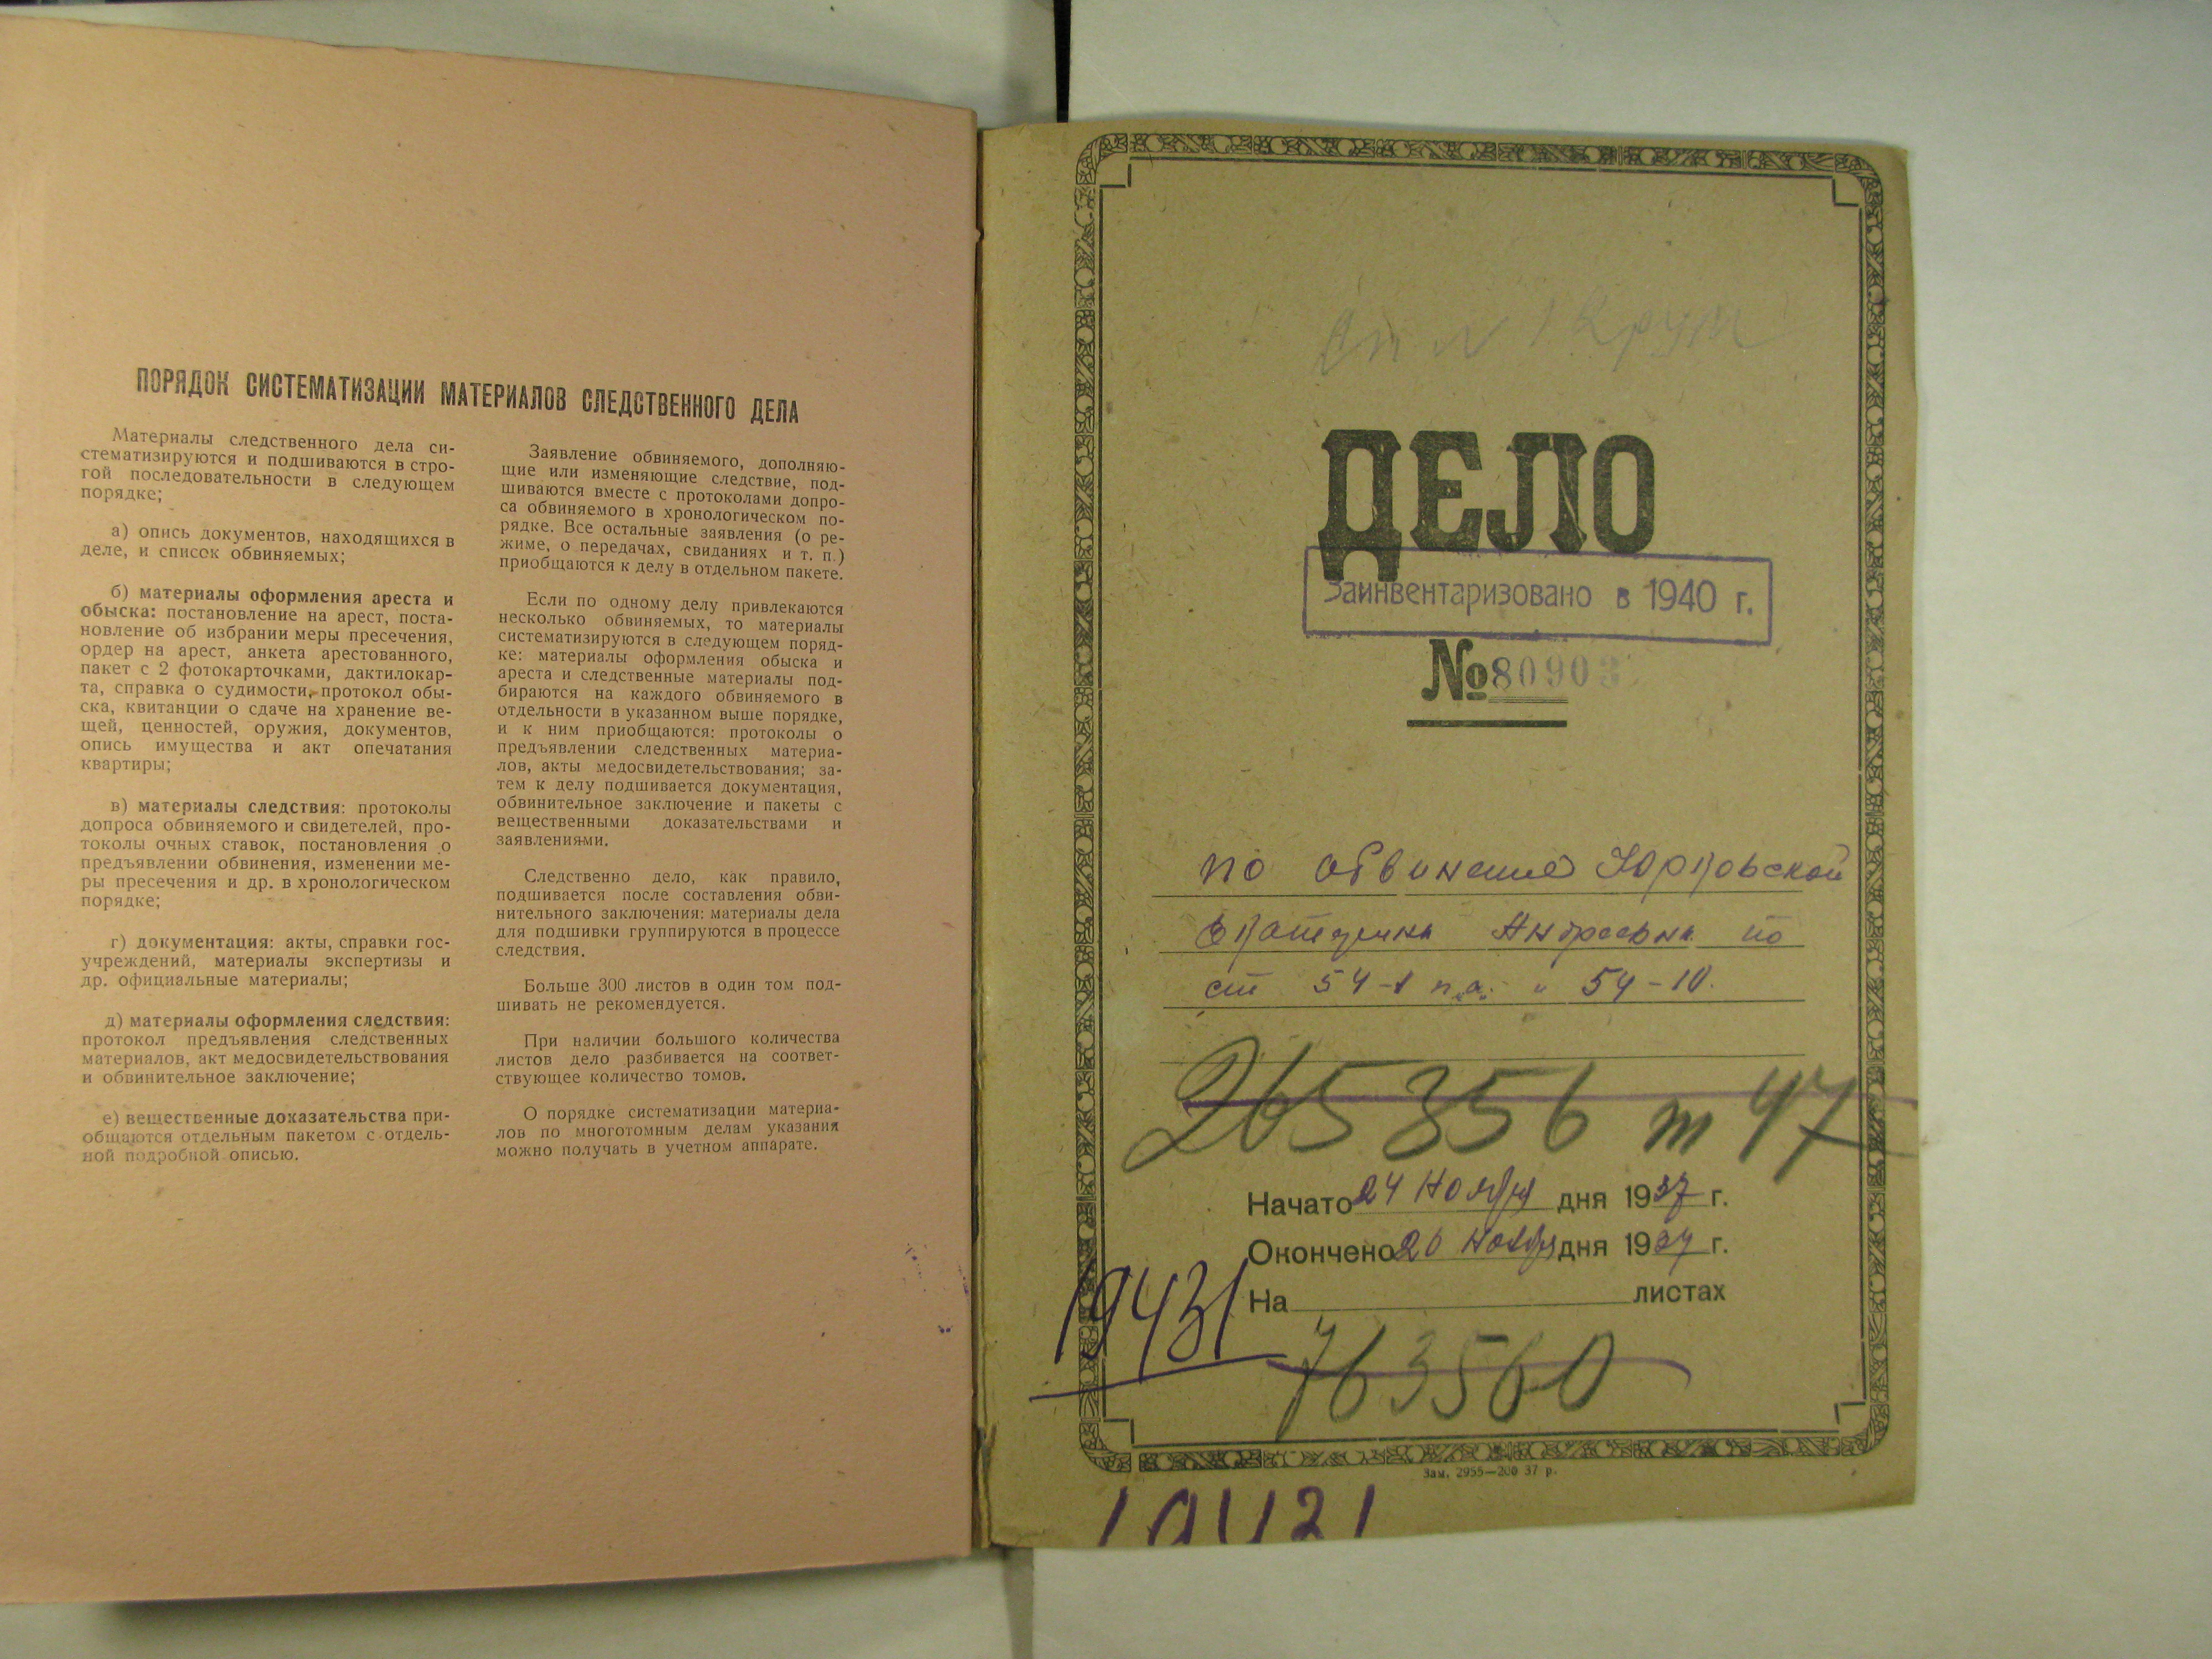 ПОРЯДОК СИСТЕМАТИЗАЦИИ МАТЕРИАЛОВ СЛЕДСТВЕННОГО ДЕЛА
Материалы следственного дела си-
стематизируются и подшиваются в стро-
гой последовательности в следующем
порядке;
а) опись документов, находящихся в
деле, и список обвиняемых;
б) материалы оформления ареста и
обыска: постановление на арест, поста-
новление об избрании меры пресечения,
ордер на арест, анкета арестованного,
пакет с 2 фотокарточками, дактилокар-
та, справка о судимости, протокол обы-
ска, квитанции о сдаче на хранение ве-
щей, ценностей, оружия, документов,
опись имущества и акт опечатания
квартиры;
в) материалы следствия: протоколы
допроса обвиняемого и свидетелей, про-
токолы очных ставок, постановления о
предъявлении обвинения, изменении ме-
ры пресечения и др. в хронологическом
порядке;
г) документация: акты, справки гос-
учреждений, материалы экспертизы и
др. официальные материалы;
д) материалы оформления следствия:
протокол предъявления следственных
материалов, акт медосвидетельствования
и обвинительное заключение;
е) вещественные доказательства при-
общаются отдельным пакетом с отдель-
ной подробной описью.
Заявление обвиняемого, дополняю-
щие или изменяющие следствие, под-
шиваются вместе с протоколами допро-
са обвиняемого в хронологическом по-
рядке. Все остальные заявления (о ре-
жиме, о передачах, свиданиях и т. п.)
приобщаются к делу в отдельном пакете.
Если по одному делу привлекаются
несколько обвиняемых, то материалы
систематизируются в следующем поряд-
ке: материалы оформления обыска и
ареста и следственные материалы под-
бираются на каждого обвиняемого в
отдельности в указанном выше порядке,
и к ним приобщаются: протоколы о
предъявлении следственных материа-
лов, акты медосвидетельствования; за-
тем к делу подшивается документация,
обвинительное заключение и пакеты с
вещественными доказательствами и
заявлениями.
Следственно дело, как правило,
подшивается после составления обви-
нительного заключения: материалы дела
для подшивки группируются в процессе
следствия.
Больше 300 листов в один том под-
шивать не рекомендуется.
При наличии большого количества
листов дело разбивается на соответ-
ствующее количество томов.
О порядке систематизации материа-
лов по многотомным делам указания
можно получать в учетном аппарате.
ДЕЛО
Заинвентаризовано в 1940 г.
№ 80903
по обвинению
Андреевны по
ст 54-1 п „а“ и 54-10.
265356 т 47
Начато 24 Ноября дня 1937 г.
Окончено 26 Ноября дня 1937 г.
На листах
19431
763560
Зам. 2955—200 37 р.